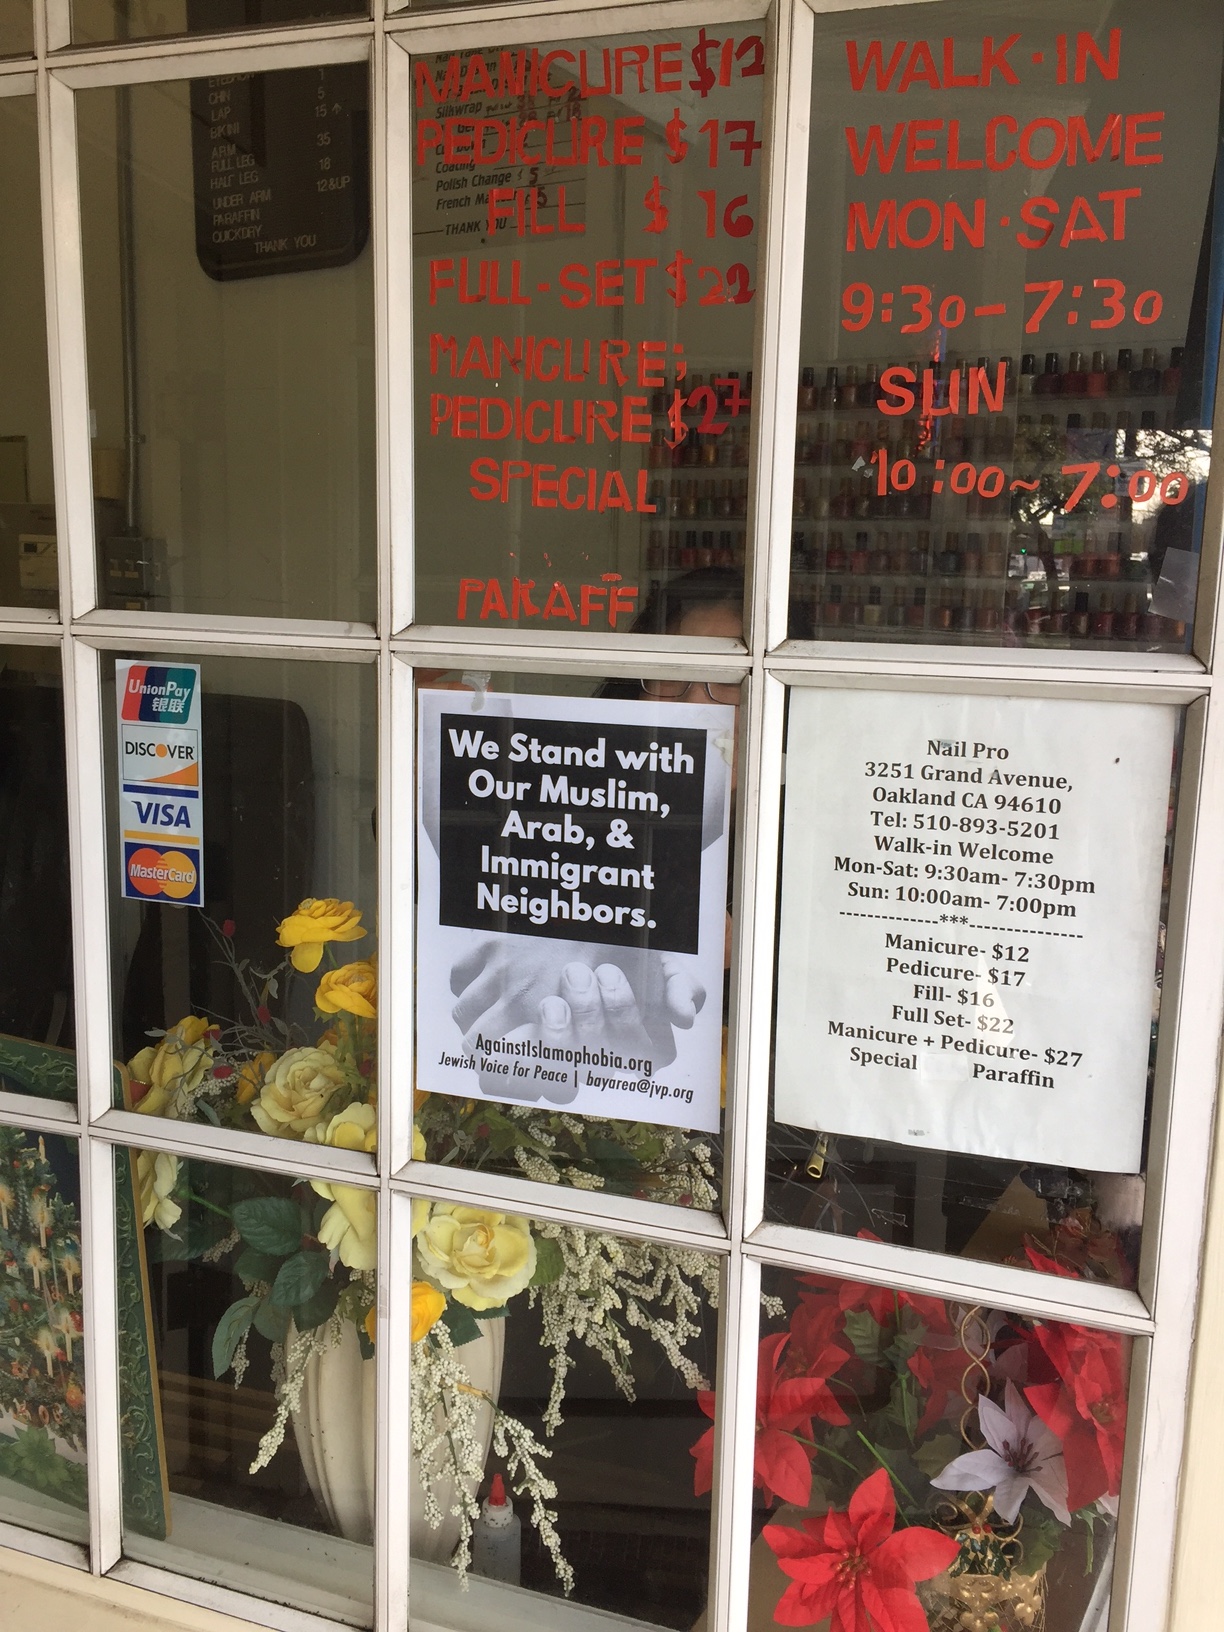 CHIN 5
LAP 15
BIKINI
ARM 35
FULL LEG 18
HALF LEG 12&UP
UNDER ARM
PARAFFIN
QUICKDRY
THANK YOU
Silkwrap
Polish Change $ 5
French
THANK YOU
MANICURE $12
PEDICURE $17
FILL $16
FULL-SET $22
MANICURE;
PEDICURE $27
SPECIAL
PARAFF
WALK-IN
WELCOME
MON-SAT
9:30-7:30
SUN
10:00~7:00
UnionPay
银联
DISCOVER
VISA
MasterCard
We Stand with
Our Muslim,
Arab, &
Immigrant
Neighbors.
AgainstIslamophobia.org
Jewish Voice for Peace | bayarea@jvp.org
Nail Pro
3251 Grand Avenue,
Oakland CA 94610
Tel: 510-893-5201
Walk-in Welcome
Mon-Sat: 9:30am- 7:30pm
Sun: 10:00am- 7:00pm
--------------***----------------
Manicure- $12
Pedicure- $17
Fill- $16
Full Set- $22
Manicure + Pedicure- $27
Special Paraffin